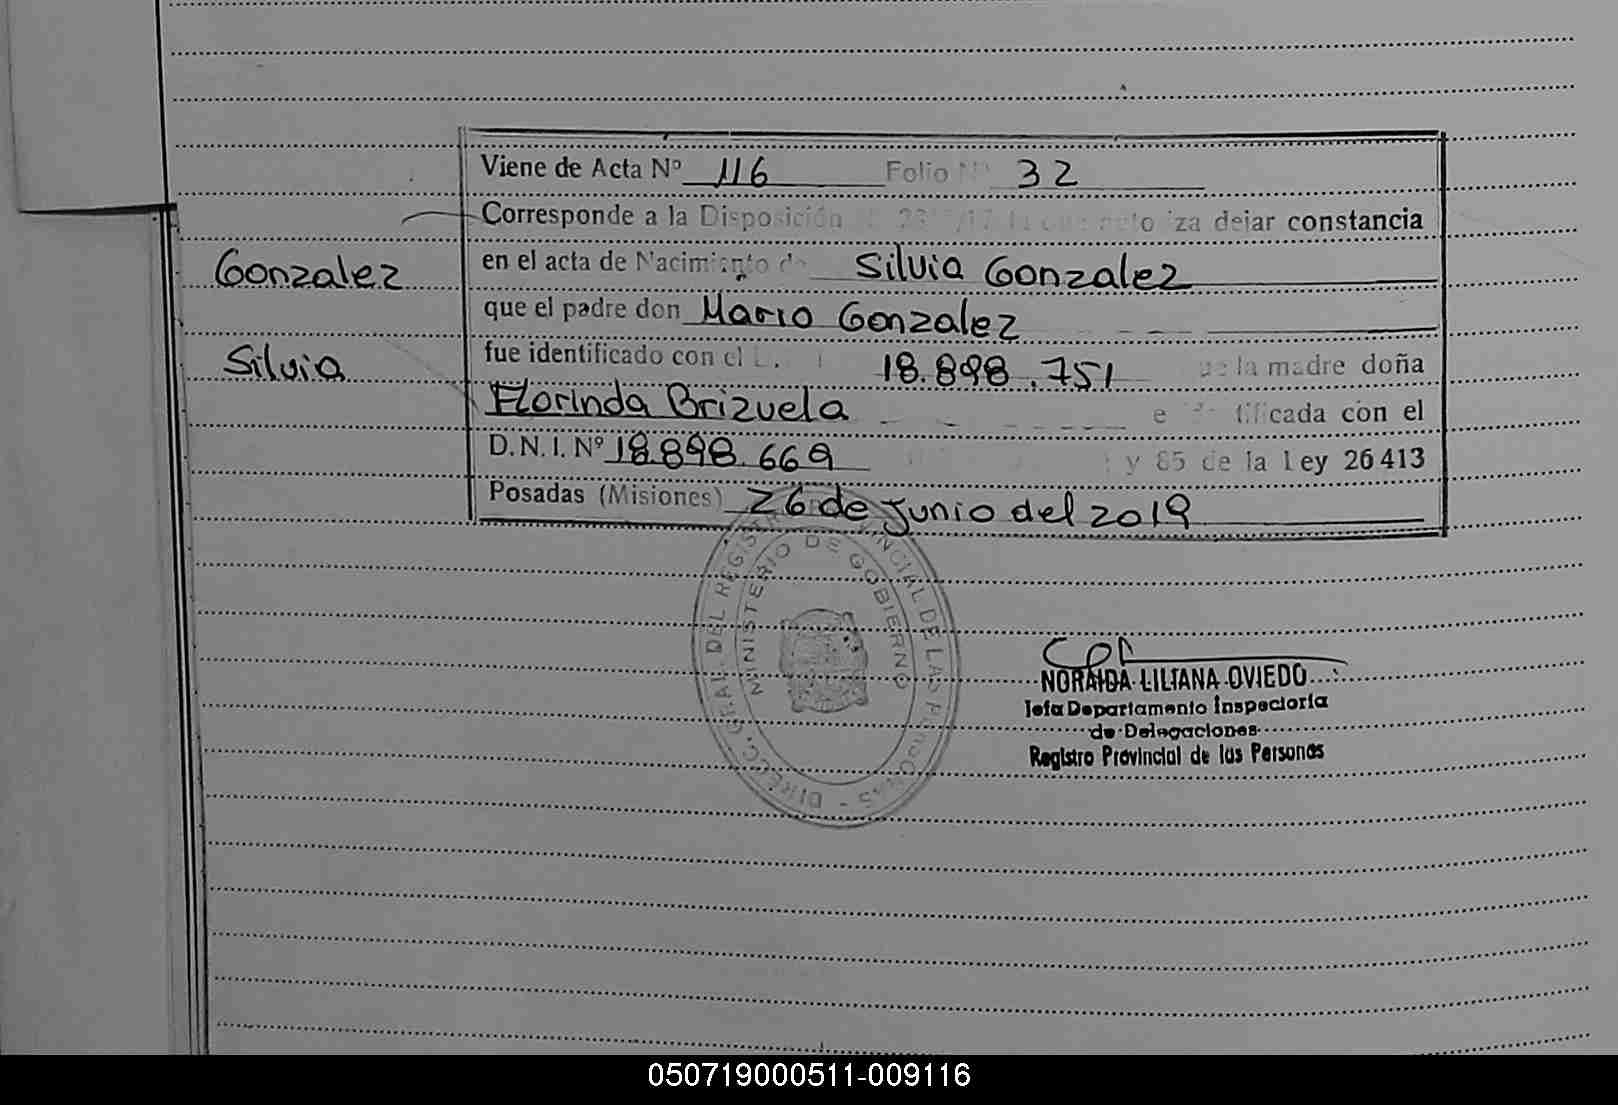 Viene de Acta Nº 116 Folio Nº 32
Corresponde a la Disposición iza dejar constancia
Gonzalez
en el acta de Nacimiento de Silvia Gonzalez
que el padre don Mario Gonzalez
Silvia
fue identificado con el 18.898.751 la madre doña
Florinda Brizuela tificada con el
D.N.I. Nº 18.898.669 y 85 de la ley 26413
Posadas (Misiones) 26 de junio del 2019
DIRECC. GRAL. DEL REGISTRO PROVINCIAL DE LAS PERSONAS -
MINISTERIO DE GOBIERNO
NORAIDA LILIANA OVIEDO
Jefa Departamento Inspectoría
de Delegaciones
Registro Provincial de las Personas
050719000511-009116